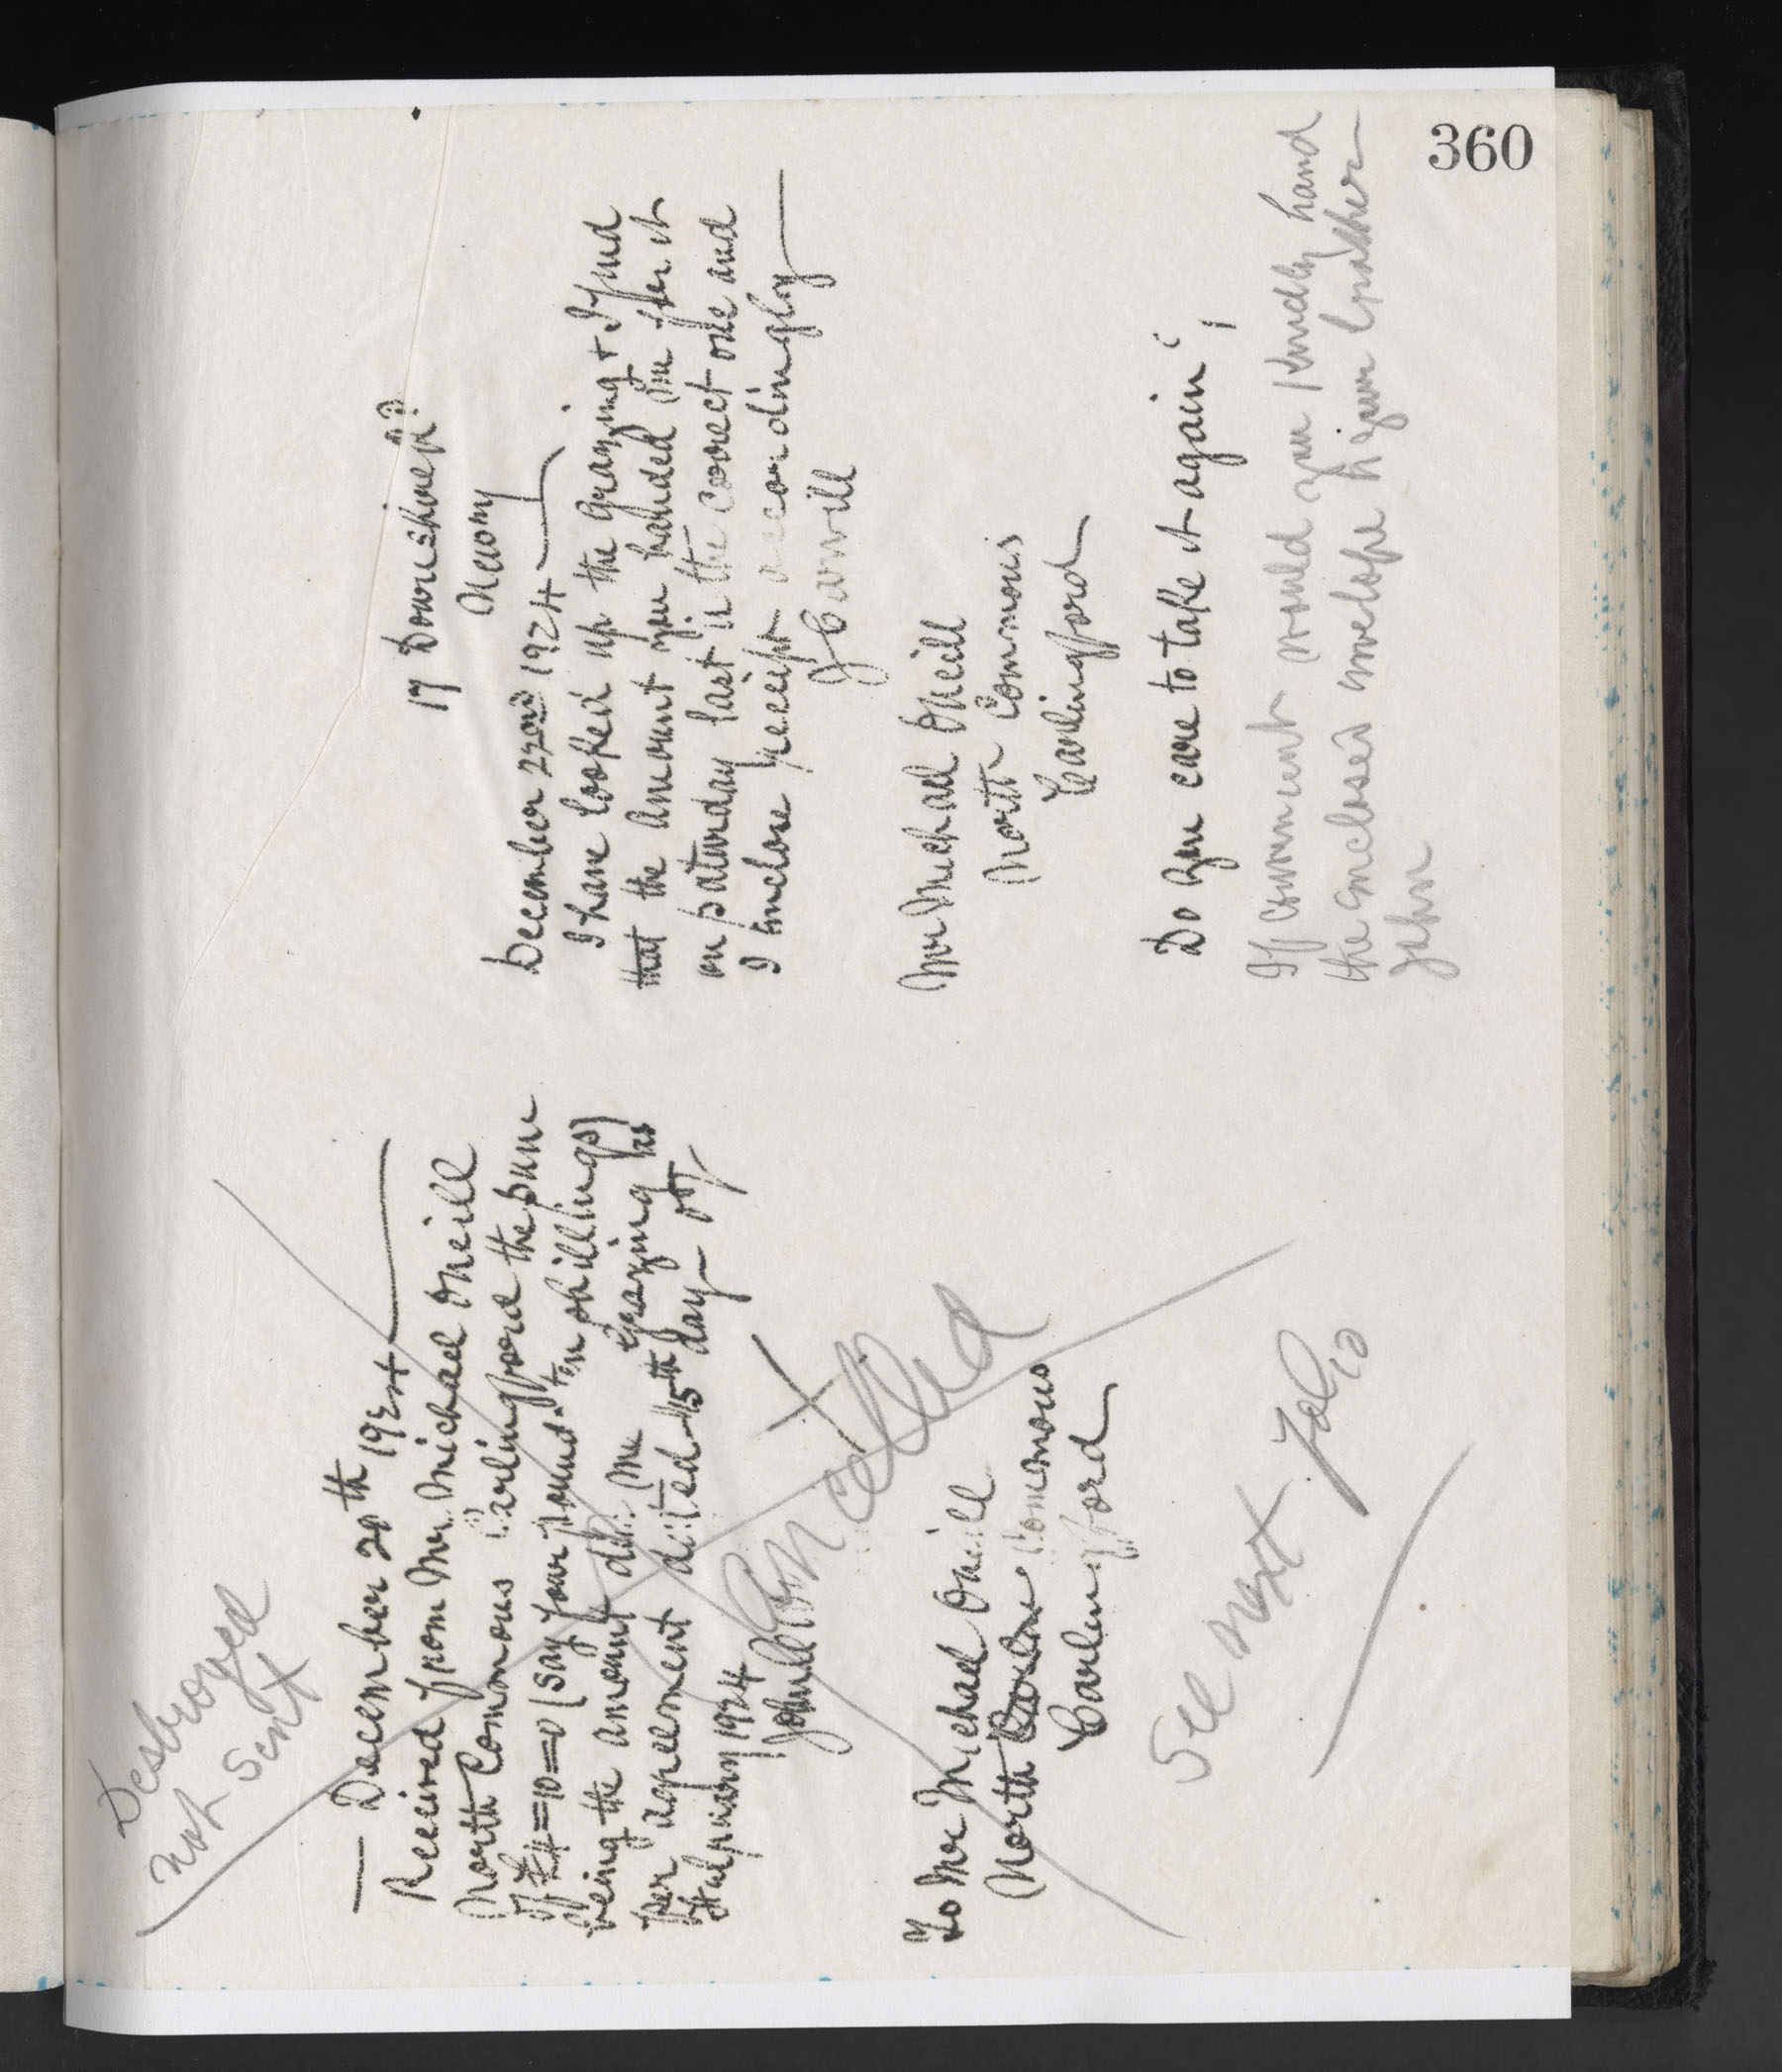 360
Destroyed
not sent
December 20th 1924
Received from Mr. Michael ONeill
North Commons Carlingford the sum
of £4=10=0 (say four pounds ten shillings)
being the amount due me Grazing as
per agreement dated 15th day of
1924
John
Cancelled
To Mr Michael ONeill
North Commons
Carlingford
See next Folio
17 Downshire Rd
Newry
December 22nd 1924
I have looked up the Grazing & I find
that the amount you handed me for it
on saturday last is the Correct one and
I enclose receipt accordingly
J Carvill
Mr Michael ONeill
North Commons
Carlingford
Do you care to take it again?
If convenient would you kindly hand
the enclosed envelope to your brother
John